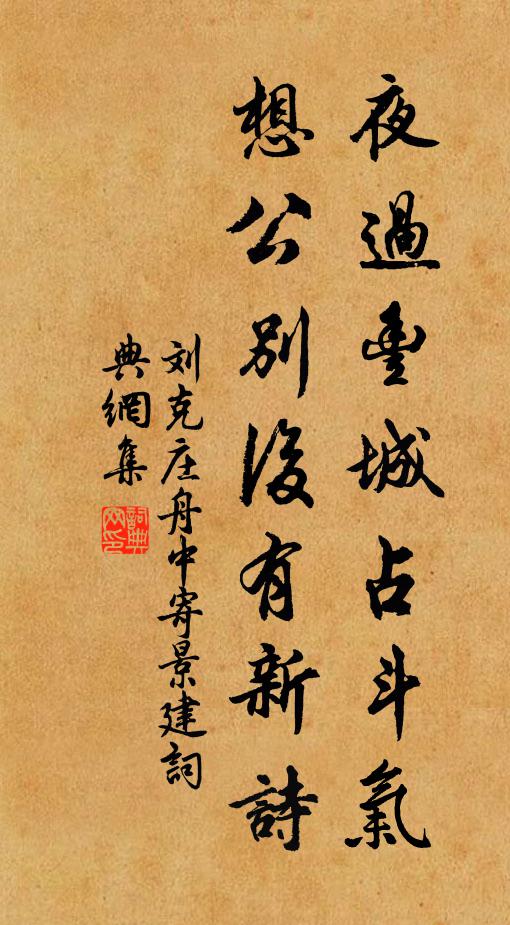 夜過豐城占斗氣
想公別後有新詩
刘克庄舟中寄景建詞
典網集
詞典